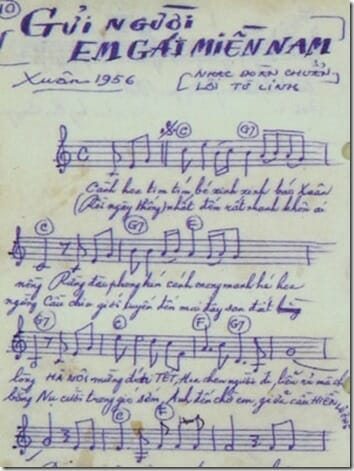 10
GỬI NGƯỜI
EM GÁI MIỀN NAM
Xuân 1956
NHẠC ĐOÀN CHUẨN
LỜI TỪ LINH
C G7
Cành hoa tim tím bé xinh xinh báo Xuân
(Rồi ngày thống) nhất đến rất nhanh không ai
C G7 C
nồng Rừng đầu phong kín cánh mong manh hé hoa
ngăng Cầu chia giới tuyến đến mai đây san đất
G7 C F G7
lòng HÀ NỘI mừng đón TẾT, Hoa chen người đi, liễu rủ mà chi
bằng Nụ cười trong gió sớm, Anh đến chờ em, giữa cầu HIỀN LƯƠNG
C F